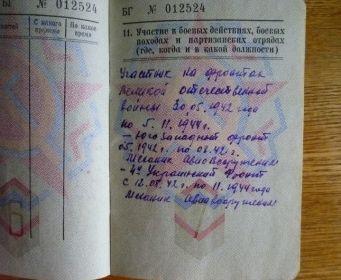 БГ № 012524
С какого времени
По какое время
БГ № 012524
11. Участие в боевых действиях, боевых
походах и партизанских отрядах
(где, когда и в какой должности)
Участник на фронтах
Великой отечественной
войны 30.05.1942 года
по 5.11.1944 г.
– Юго Западный фронт
05.1942 г. по 08.42 г.
Механик Авиавооружения
– 4й Украинский Фронт
с 12.08.42 г. по 11.1944 года
Механик Авиавооружения